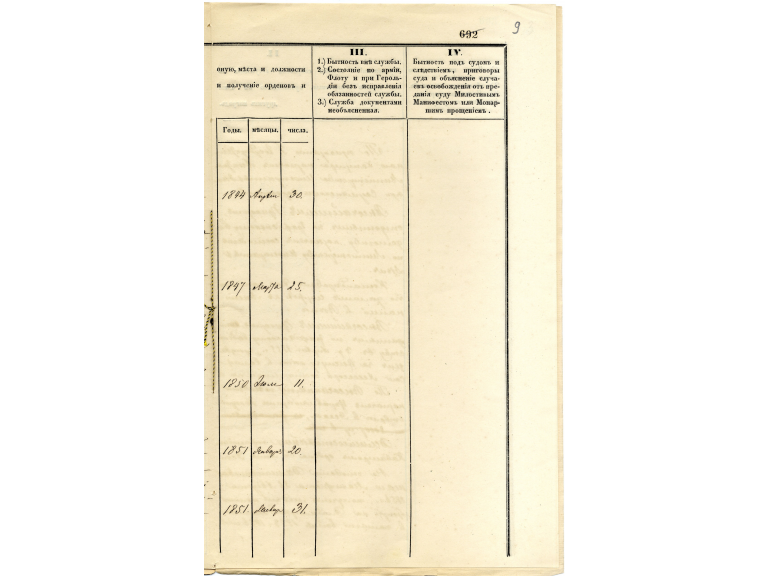 692
9
III.
IV.
оную, мѣста и должности
и полученіе орденовъ и
1.) Бытность внѣ службы.
2.) Состояніе по арміи,
Флоту и при Героль-
діи безъ исправленія
обязанностей службы.
3.) Служба документами
необъясненная.
Бытность подъ судомъ и
слѣдствіемъ, приговоры
суда и объясненіе случа-
евъ освобожденія отъ пре-
данія суду Милостивымъ
Манифестомъ или Монар-
шимъ прощеніемъ.
Годы. мѣсяцы. числа.
1844 30.
1847 Марта 25.
1850 Іюля 11.
1851 Января 20.
1851. 31.